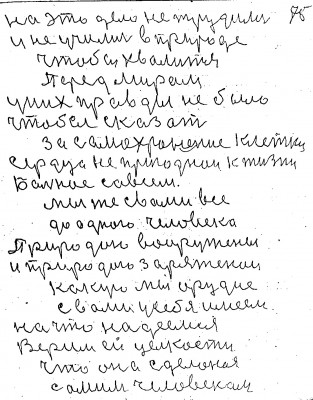 на это дело не трудили 75
и не учили в природе
чтобы хвалится
Перед миром
у них правды не было
чтобы сказат
За самохранение клетки
сердца не пригодной к жизни
совсем.
мы же с вами все
до одного человека
Природою вооружены
и природою заряжены
какую мы орудие
с вами у себя имеем
на что надеемся
Верим ей целкости
что она сделоная
самим человеком